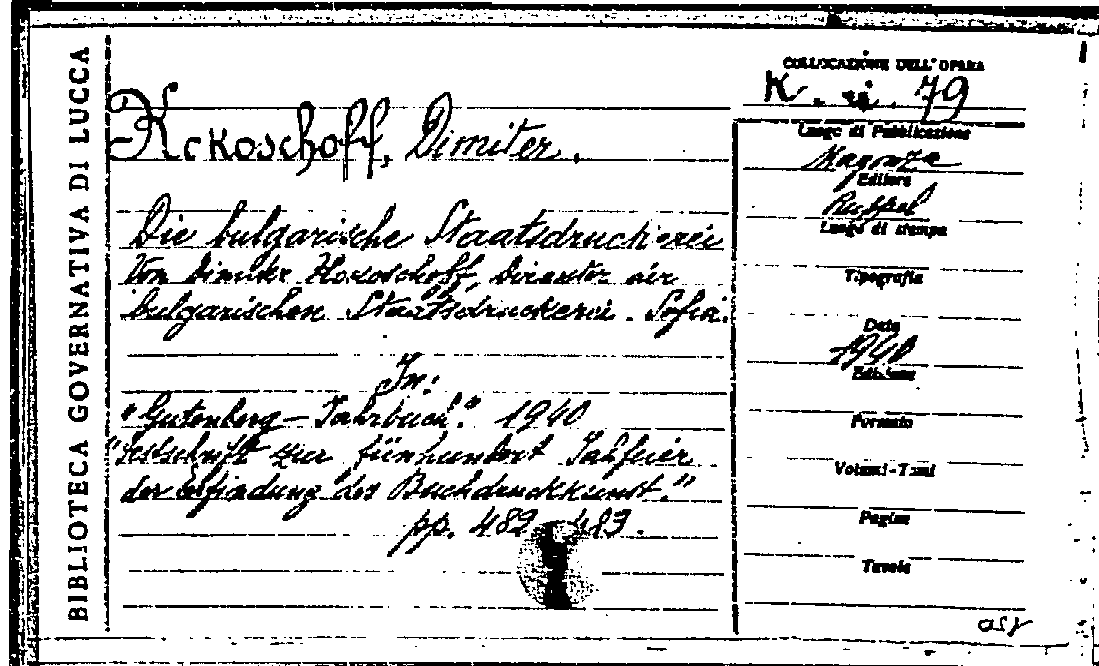 BIBLIOTECA GOVERNATIVA DI LUCCA
Kckoschoff, Dimiter.
Die bulgarische Staatsdruckerei
Von Dimiter Director
bulgarischen Staatsdruckerei. Sofia.
In:
"Gutenberg-Jahrbuch." 1940
"Festschrift zur fünhundert Jahfeier
der Erfindung des Buchdruckkunst."
pp. 482 483.
COLLOCAZIONE DELL'OPERA
K. 79
Luogo di Pubblicazione
Magonza
Editore
Ruppel
Luogo di stampa
Tipografia
Data
1940
Edizione
Formato
Volumi-Tomi
Pagine
Tavole